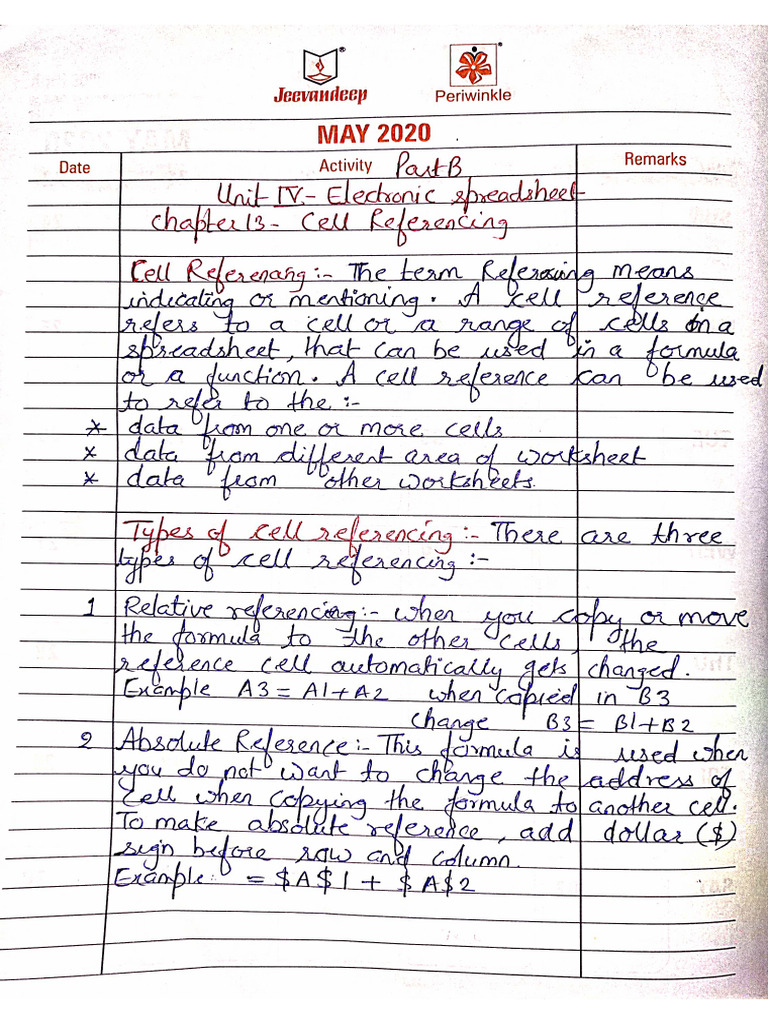 Jeevandeep
Periwinkle
MAY 2020
Date Activity Part B Remarks
Unit IV - Electronic spreadsheet
Chapter 13 - Cell Referencing
Cell Referencing :- The term Referencing means
indicating or mentioning. A cell reference
refers to a cell or a range of cells on a
spreadsheet, that can be used in a formula
or a function. A cell reference can be used
to refer to the :-
* data from one or more cells
* data from different area of worksheet
* data from other worksheets.
Types of cell referencing :- There are three
types of cell referencing :-
1 Relative referencing :- when you copy or move
the formula to the other cells, the
reference cell automatically gets changed.
Example A3 = A1+A2 when copied in B3
change B3 = B1+B2
2 Absolute Reference :- This formula is used when
you do not want to change the address of
cell when copying the formula to another cell.
To make absolute reference, add dollar ($)
sign before row and column.
Example: = $A$1 + $A$2